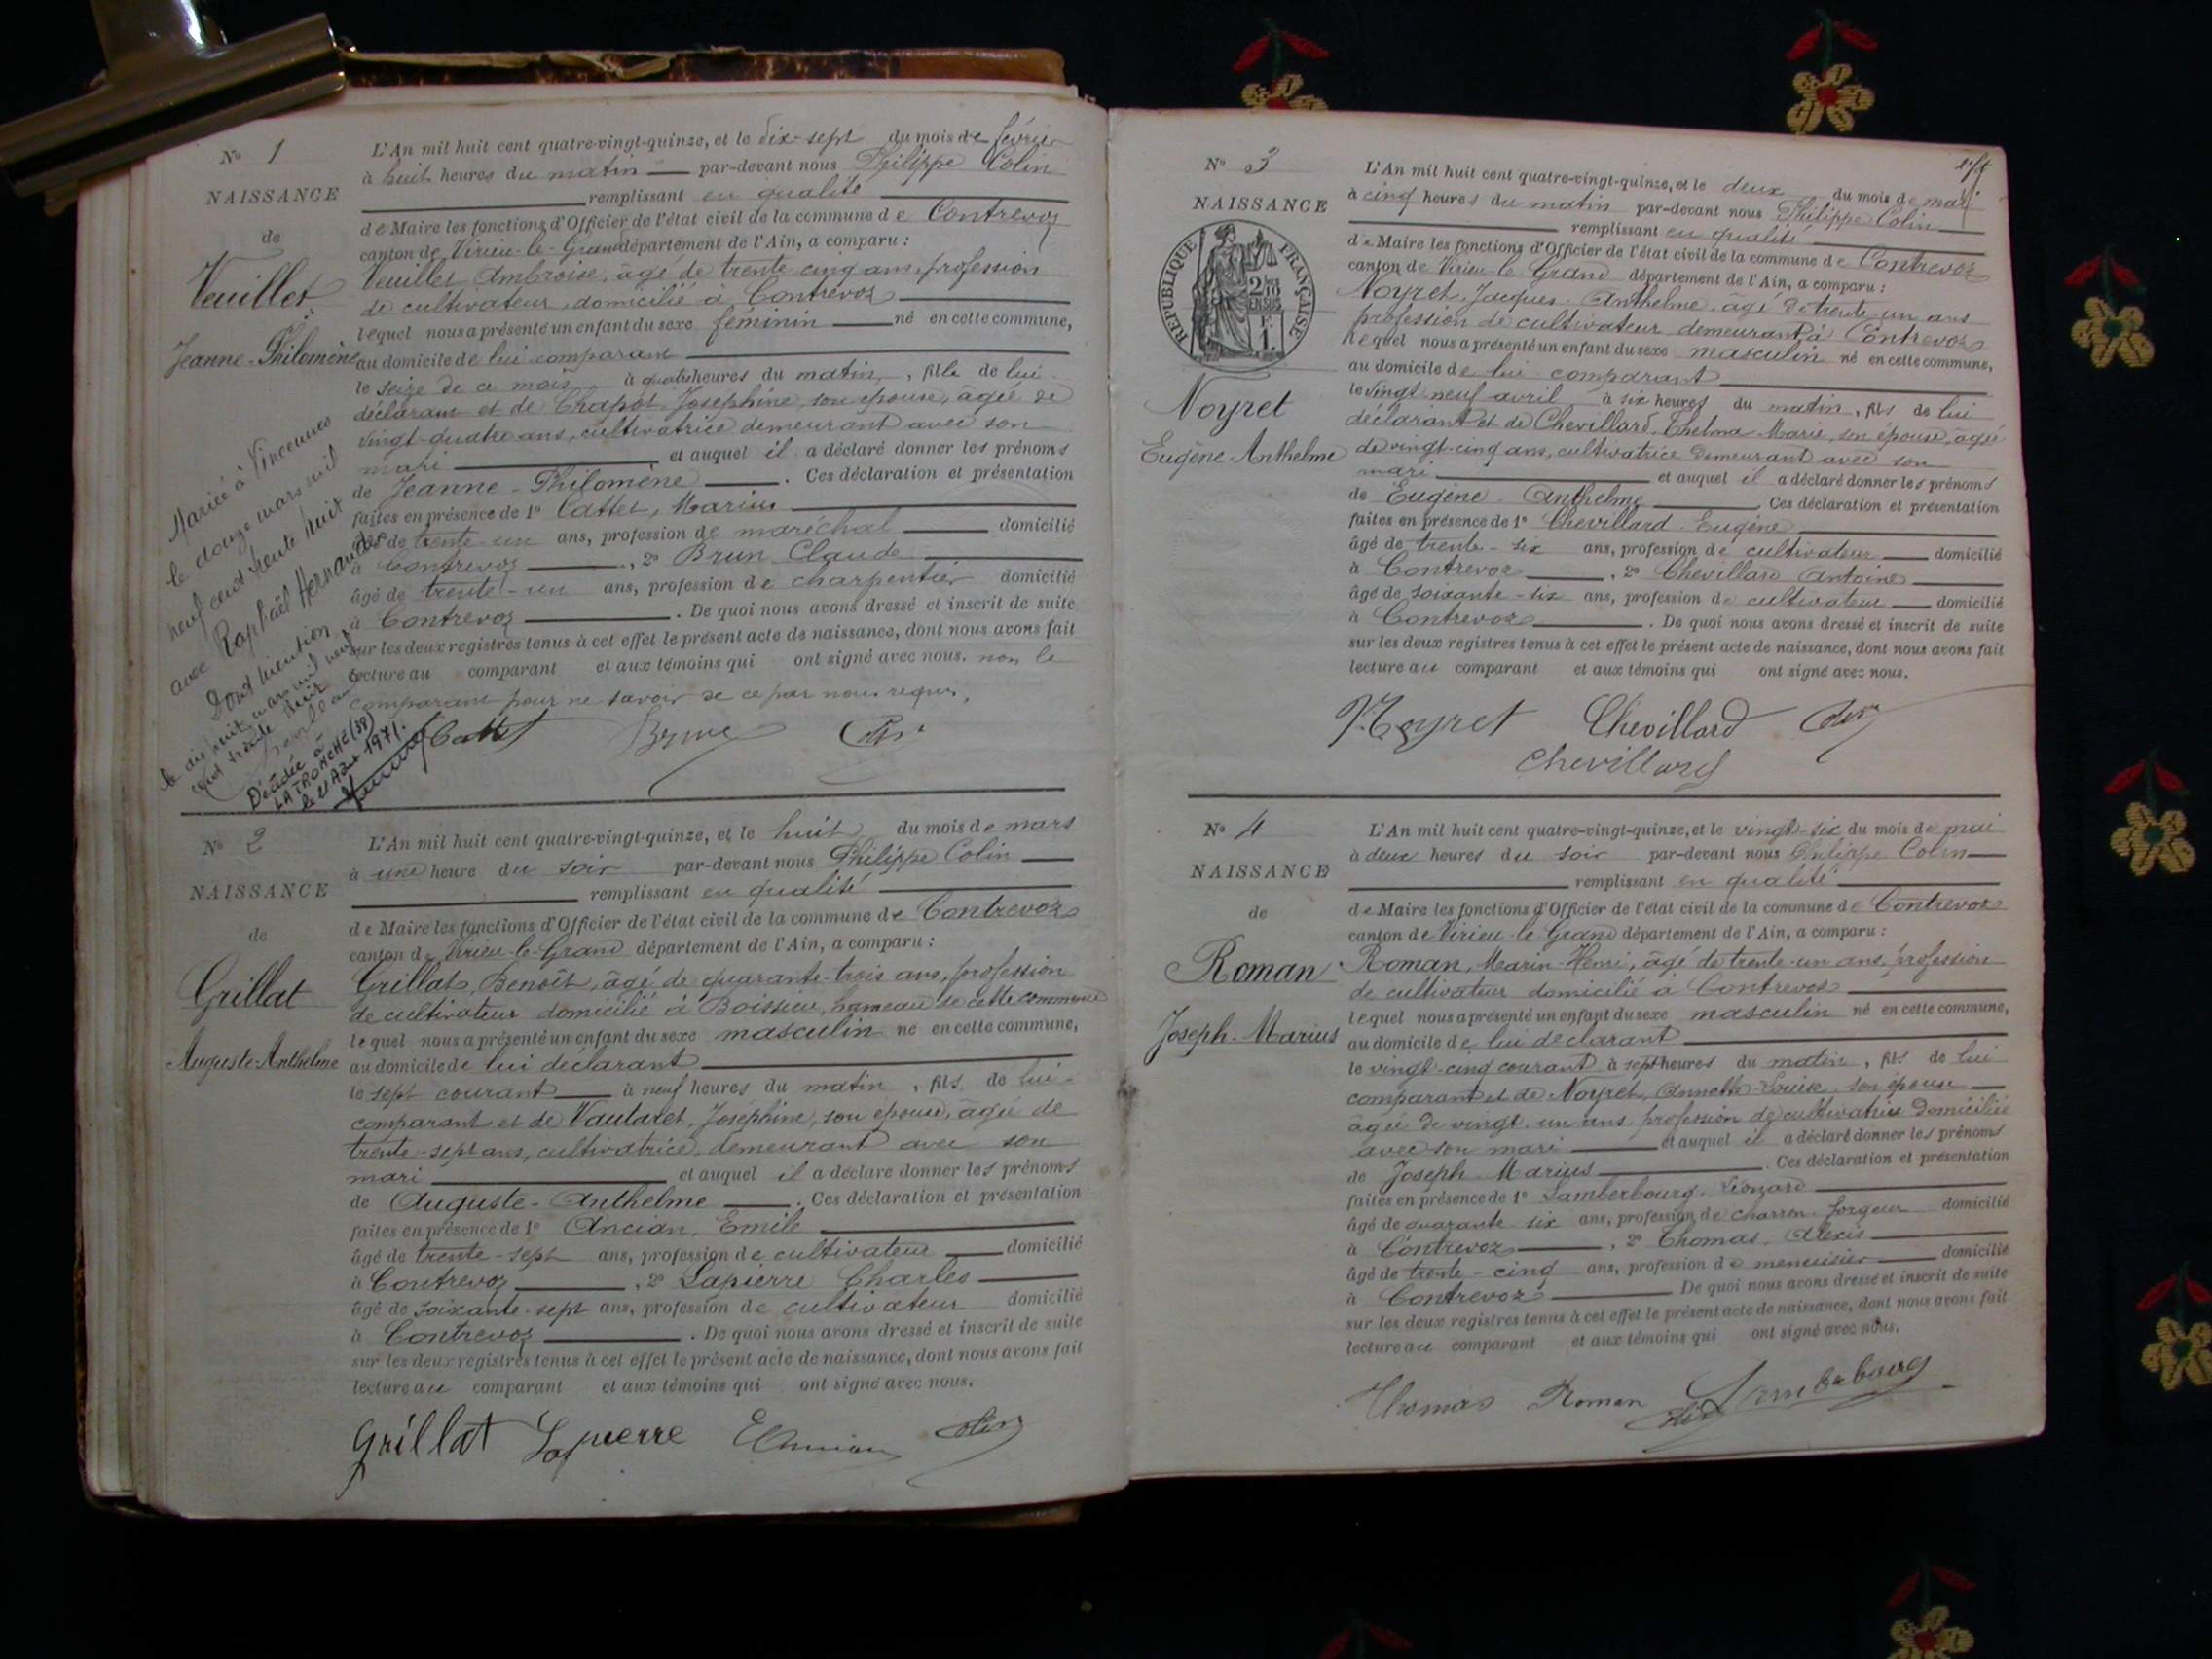 N° 1
NAISSANCE
de
Veuillet
Jeanne-Philomène
Mariée à Vincennes
le douze mars mil
neuf cent trente huit
avec Raphaël Hernandez
Dont mention
le dix huit mars mil neuf
cent trente huit
Décédée à
LA TRONCHE (38)
le 21 Août 1971.
L'An mil huit cent quatre-vingt-quinze, et le dix-sept du mois de février
à huit heures du matin par-devant nous Philippe Colin
remplissant en qualité
de Maire les fonctions d'Officier de l'état civil de la commune de Contrevoz
canton de Virieu-le-Grand département de l'Ain, a comparu :
Veuillet Ambroise, âgé de trente cinq ans, profession
de cultivateur, domicilié à Contrevoz
lequel nous a présenté un enfant du sexe féminin né en cette commune,
au domicile de lui comparant
le seize de ce mois à quatre heures du matin, fille de lui
déclarant et de Chapot Josephine, son épouse, âgée de
vingt-quatre ans, cultivatrice demeurant avec son
mari et auquel il a déclaré donner les prénoms
de Jeanne-Philomène. Ces déclaration et présentation
faites en présence de 1° Cattet, Marius
âgé de trente-un ans, profession de maréchal domicilié
à Contrevoz, 2° Brun Claude
âgé de trente-un ans, profession de charpentier domicilié
à Contrevoz. De quoi nous avons dressé et inscrit de suite
sur les deux registres tenus à cet effet le présent acte de naissance, dont nous avons fait
lecture au comparant et aux témoins qui ont signé avec nous. non le
comparant pour ne savoir de ce par nous requis.
Cattet Brun Colin
N° 2
NAISSANCE
de
Grillat
Auguste-Anthelme
L'An mil huit cent quatre-vingt-quinze, et le huit du mois de mars
à une heure du soir par-devant nous Philippe Colin
remplissant en qualité
de Maire les fonctions d'Officier de l'état civil de la commune de Contrevoz
canton de Virieu-le-Grand département de l'Ain, a comparu :
Grillat, Benoît, âgé de quarante-trois ans, profession
de cultivateur domicilié à Boissieu, hameau de cette commune
lequel nous a présenté un enfant du sexe masculin né en cette commune,
au domicile de lui déclarant
le sept courant à neuf heures du matin, fils de lui
comparant et de Vautaret, Joséphine, son épouse, âgée de
trente-sept ans, cultivatrice, demeurant avec son
mari et auquel il a déclaré donner les prénoms
de Auguste-Anthelme. Ces déclaration et présentation
faites en présence de 1° Ancian, Emile
âgé de trente-sept ans, profession de cultivateur domicilié
à Contrevoz, 2° Lapierre Charles
âgé de soixante-sept ans, profession de cultivateur domicilié
à Contrevoz. De quoi nous avons dressé et inscrit de suite
sur les deux registres tenus à cet effet le présent acte de naissance, dont nous avons fait
lecture au comparant et aux témoins qui ont signé avec nous.
Grillat Lapierre E Ancian Colin
N° 3
NAISSANCE
RÉPUBLIQUE FRANÇAISE
2/10
EN SUS
Noyret
Eugène-Anthelme
L'An mil huit cent quatre-vingt-quinze, et le deux du mois de mai
à cinq heures du matin par-devant nous Philippe Colin
remplissant en qualité
de Maire les fonctions d'Officier de l'état civil de la commune de Contrevoz
canton de Virieu le Grand département de l'Ain, a comparu :
Noyret, Jacques Anthelme, âgé de trente un ans
profession de cultivateur demeurant à Contrevoz
lequel nous a présenté un enfant du sexe masculin né en cette commune,
au domicile de lui comparant
le vingt neuf avril à six heures du matin, fils de lui
déclarant et de Chevillard, Thelma Marie, son épouse, âgée
de vingt-cinq ans, cultivatrice demeurant avec son
mari et auquel il a déclaré donner les prénoms
de Eugène-Anthelme. Ces déclaration et présentation
faites en présence de 1° Chevillard Eugène
âgé de trente-six ans, profession de cultivateur domicilié
à Contrevoz, 2° Chevillard Antoine
âgé de soixante-six ans, profession de cultivateur domicilié
à Contrevoz. De quoi nous avons dressé et inscrit de suite
sur les deux registres tenus à cet effet le présent acte de naissance, dont nous avons fait
lecture au comparant et aux témoins qui ont signé avec nous.
Noyret Chevillard Colin
Chevillard
N° 4
NAISSANCE
de
Roman
Joseph-Marius
L'An mil huit cent quatre-vingt-quinze, et le vingt-six du mois de mai
à deux heures du soir par-devant nous Philippe Colin
remplissant en qualité
de Maire les fonctions d'Officier de l'état civil de la commune de Contrevoz
canton de Virieu-le Grand département de l'Ain, a comparu :
Roman, Marin-Henri, âgé de trente-un ans, profession
de cultivateur domicilié à Contrevoz
lequel nous a présenté un enfant du sexe masculin né en cette commune,
au domicile de lui déclarant
le vingt-cinq courant à sept heures du matin, fils de lui
comparant et de Noyret, Annette-Louise, son épouse
âgée de vingt un ans, profession de cultivatrice domiciliée
avec son mari et auquel il a déclaré donner les prénoms
de Joseph Marius. Ces déclaration et présentation
faites en présence de 1° Lamberbourg, Léonard
âgé de quarante six ans, profession de charron-forgeur domicilié
à Contrevoz, 2° Thomas, Alexis
âgé de trente-cinq ans, profession de menuisier domicilié
à Contrevoz. De quoi nous avons dressé et inscrit de suite
sur les deux registres tenus à cet effet le présent acte de naissance, dont nous avons fait
lecture au comparant et aux témoins qui ont signé avec nous.
Thomas Roman Lamberbourg
Colin